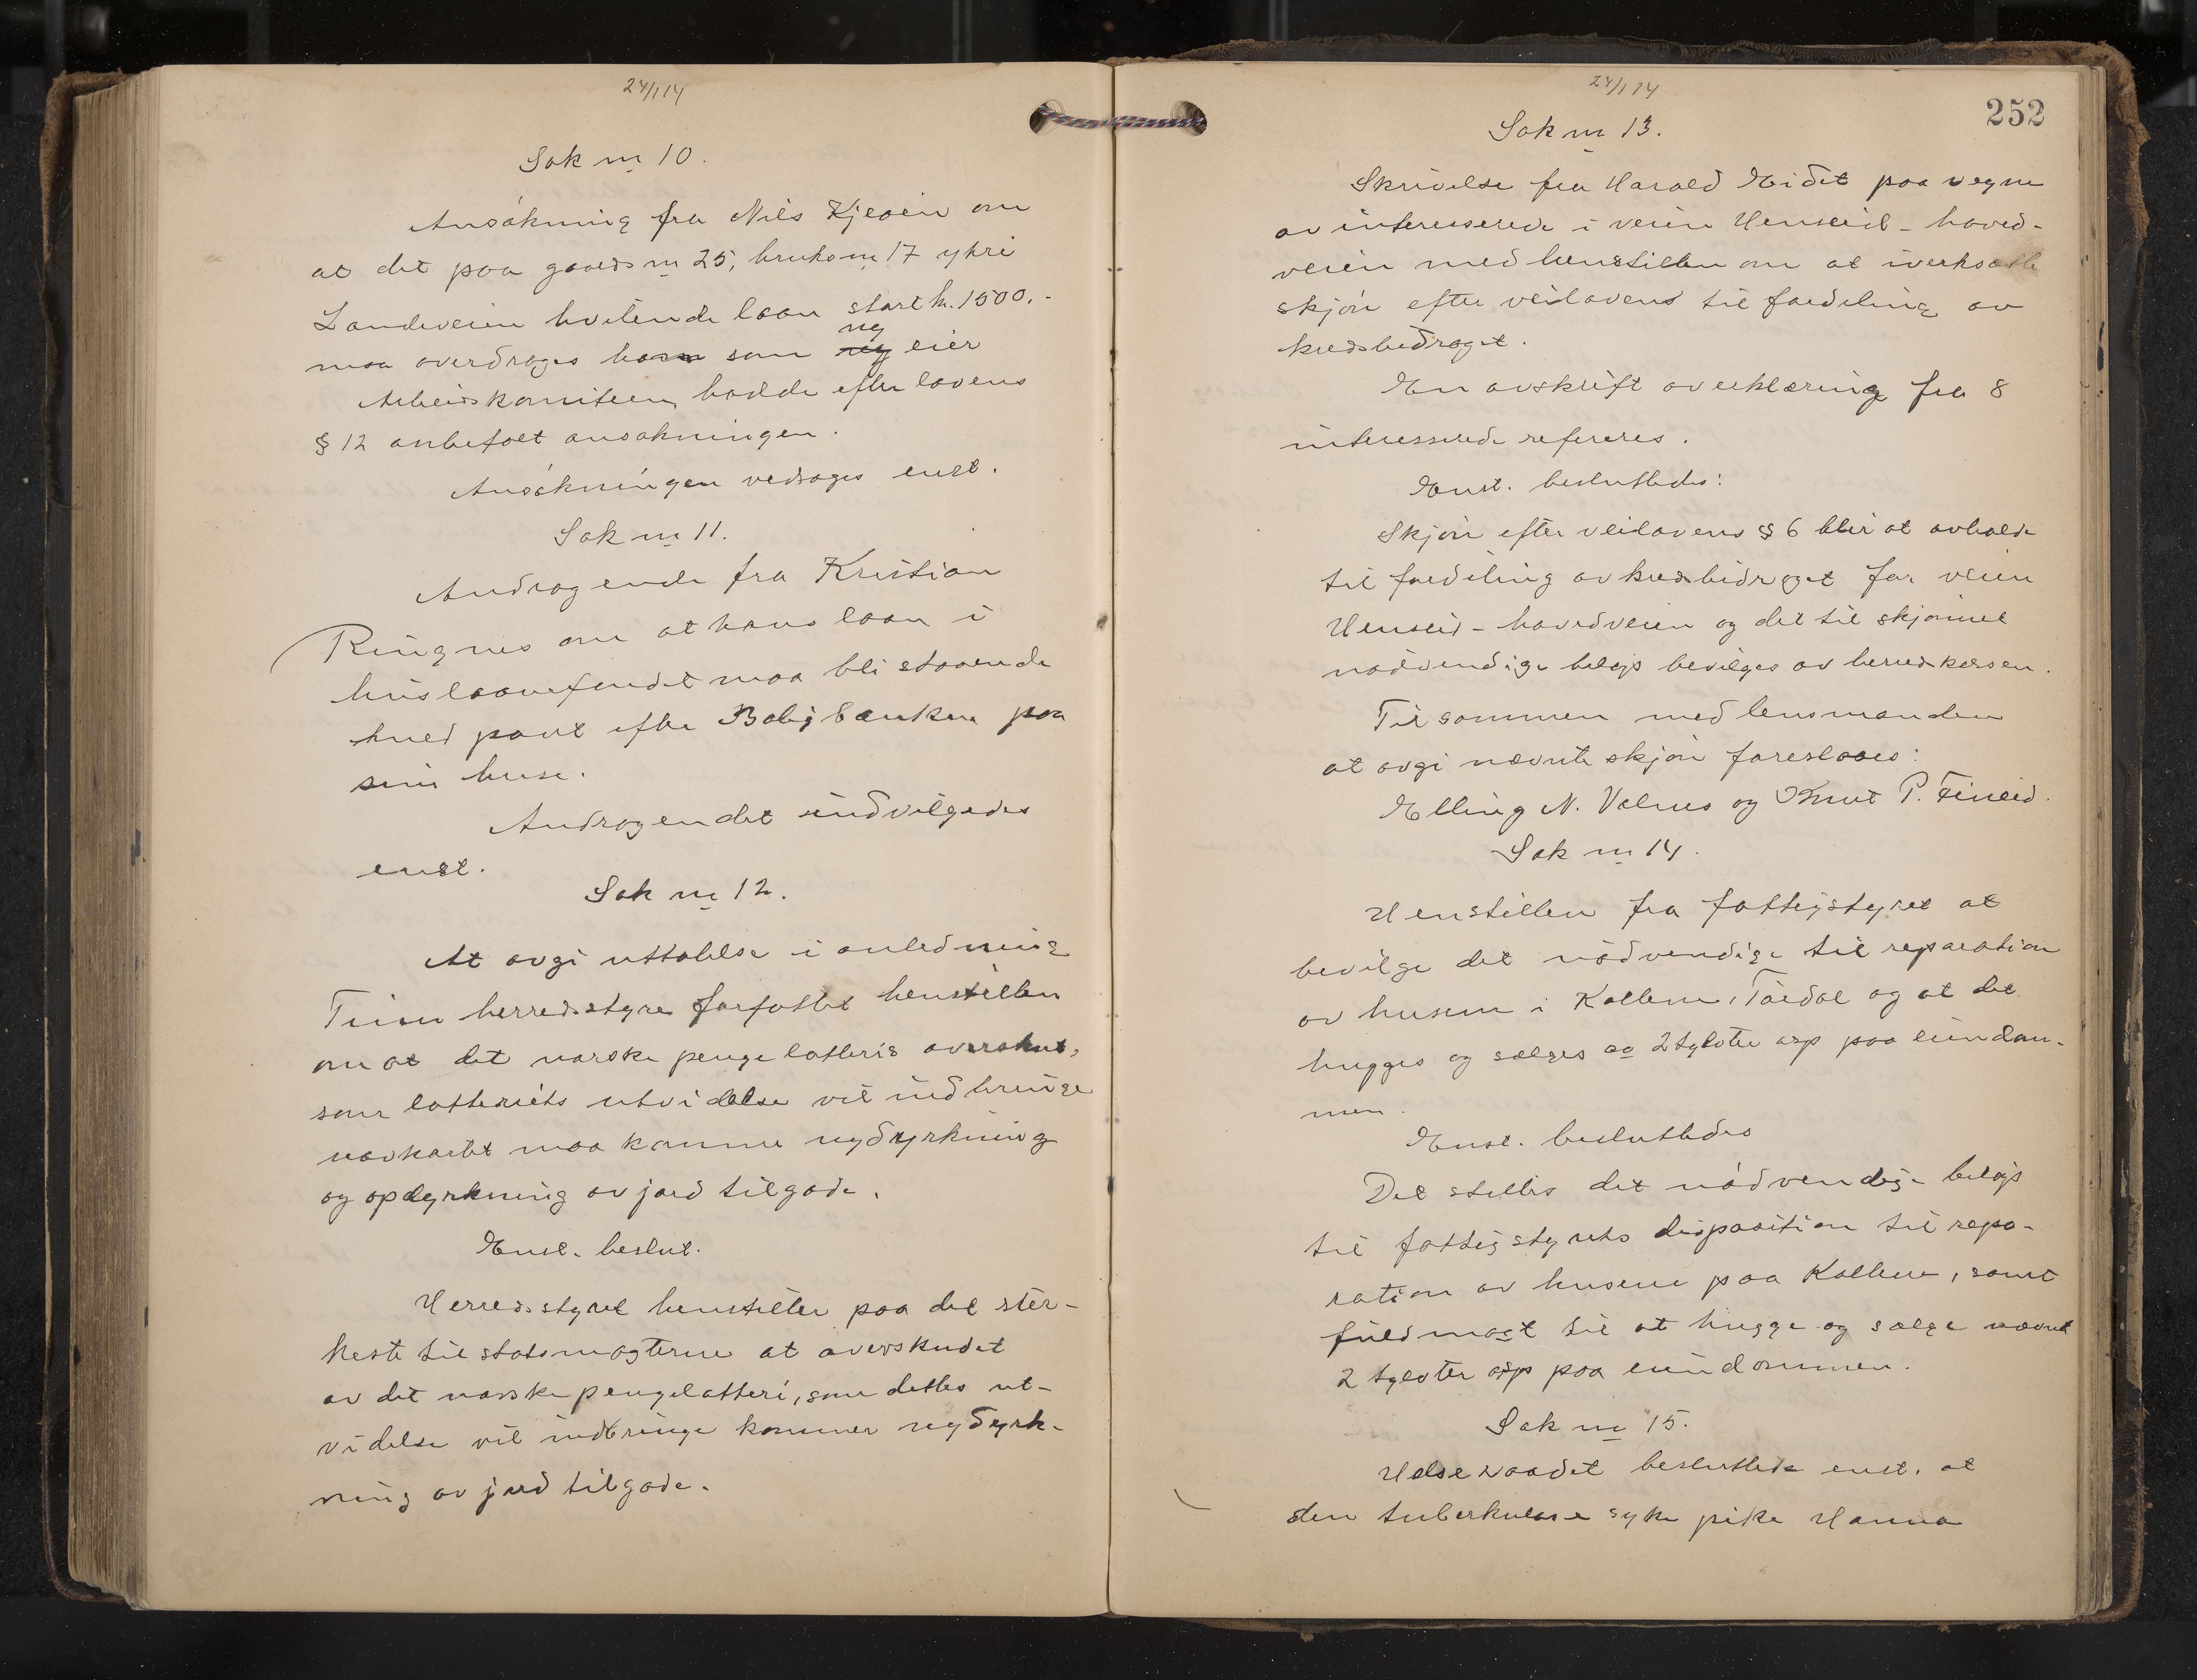 24/1 14
Sak nr 10.
Ansökning fra Nils Kjeoien om
at det paa gaards nr 25, bruks nr 17 ytre
Landeveien hvilende laan stort kr. 1500.-
maa overdrages ham som ny eier
Arbeidskomiteen hadde efter lovens
§ 12 anbefalt ansøkningen.
Ansökningen vedtages enst.
Sak nr 11.
Andragende fra Kristian
Ringnes om at hans laan i
huslaanefondet maa bli staaende
med pant efter Boligbanken paa
sine huse.
Andragendet indvilgedes
enst.
Sak nr 12.
At avgi uttalelse i anledning
Tinn herredsstyre forfattet henstillen
om at det norske pengelotteris overskut,
som lotteriets utvidelse vil indbringe
maa komme nydyrkning
og opdyrkning av jord tilgode.
Enst. beslut.
Herredsstyret henstiller paa det ster-
keste til statsmagterne at overskudet
av det norske pengelotteri, som dettes ut-
videlse vil indbringe kommer nydyrk-
ning av jord tilgode.
24/1 14
252
Sak nr 13.
Skrivelse fra Harald Eidet paa vegne
av interesserede i veien Henseid - hoved-
veien med henstillen om at iverksætte
skjön efter veilovens til fordeling av
kredsbidraget.
En avskrift av erklæring fra 8
interesserede refereres.
Enst. besluttedes:
Skjön efter veilovens § 6 blir at avholde
til fordeling av kredsbidraget for veien
Henseid - hovedveien og det til skjönnet
nödvendige beløp bevilges av herredskassen.
Til sammen med lensmanden
at avgi nævnte skjön foreslaaes:
Elling N. Valnes og Knut P. Fineid.
Sak nr 14.
Henstillen fra fattigstyret at
bevilge det nödvendige til reparation
av husene i Kollene, Tördal og at det
hugges og sælges ca 2 tylvter asp paa eiendom-
men.
Enst. besluttedes
Det stilles det nödvendige beløp
til fattigstyrets disposition til repa-
ration av husene paa Kollene, samt
fuldmagt til at hugge og sælge nævnte
2 tylvter asp paa eiendommen.
Sak nr 15.
Helseraadet besluttede enst. at
den tuberkuløse syke pike Hanna